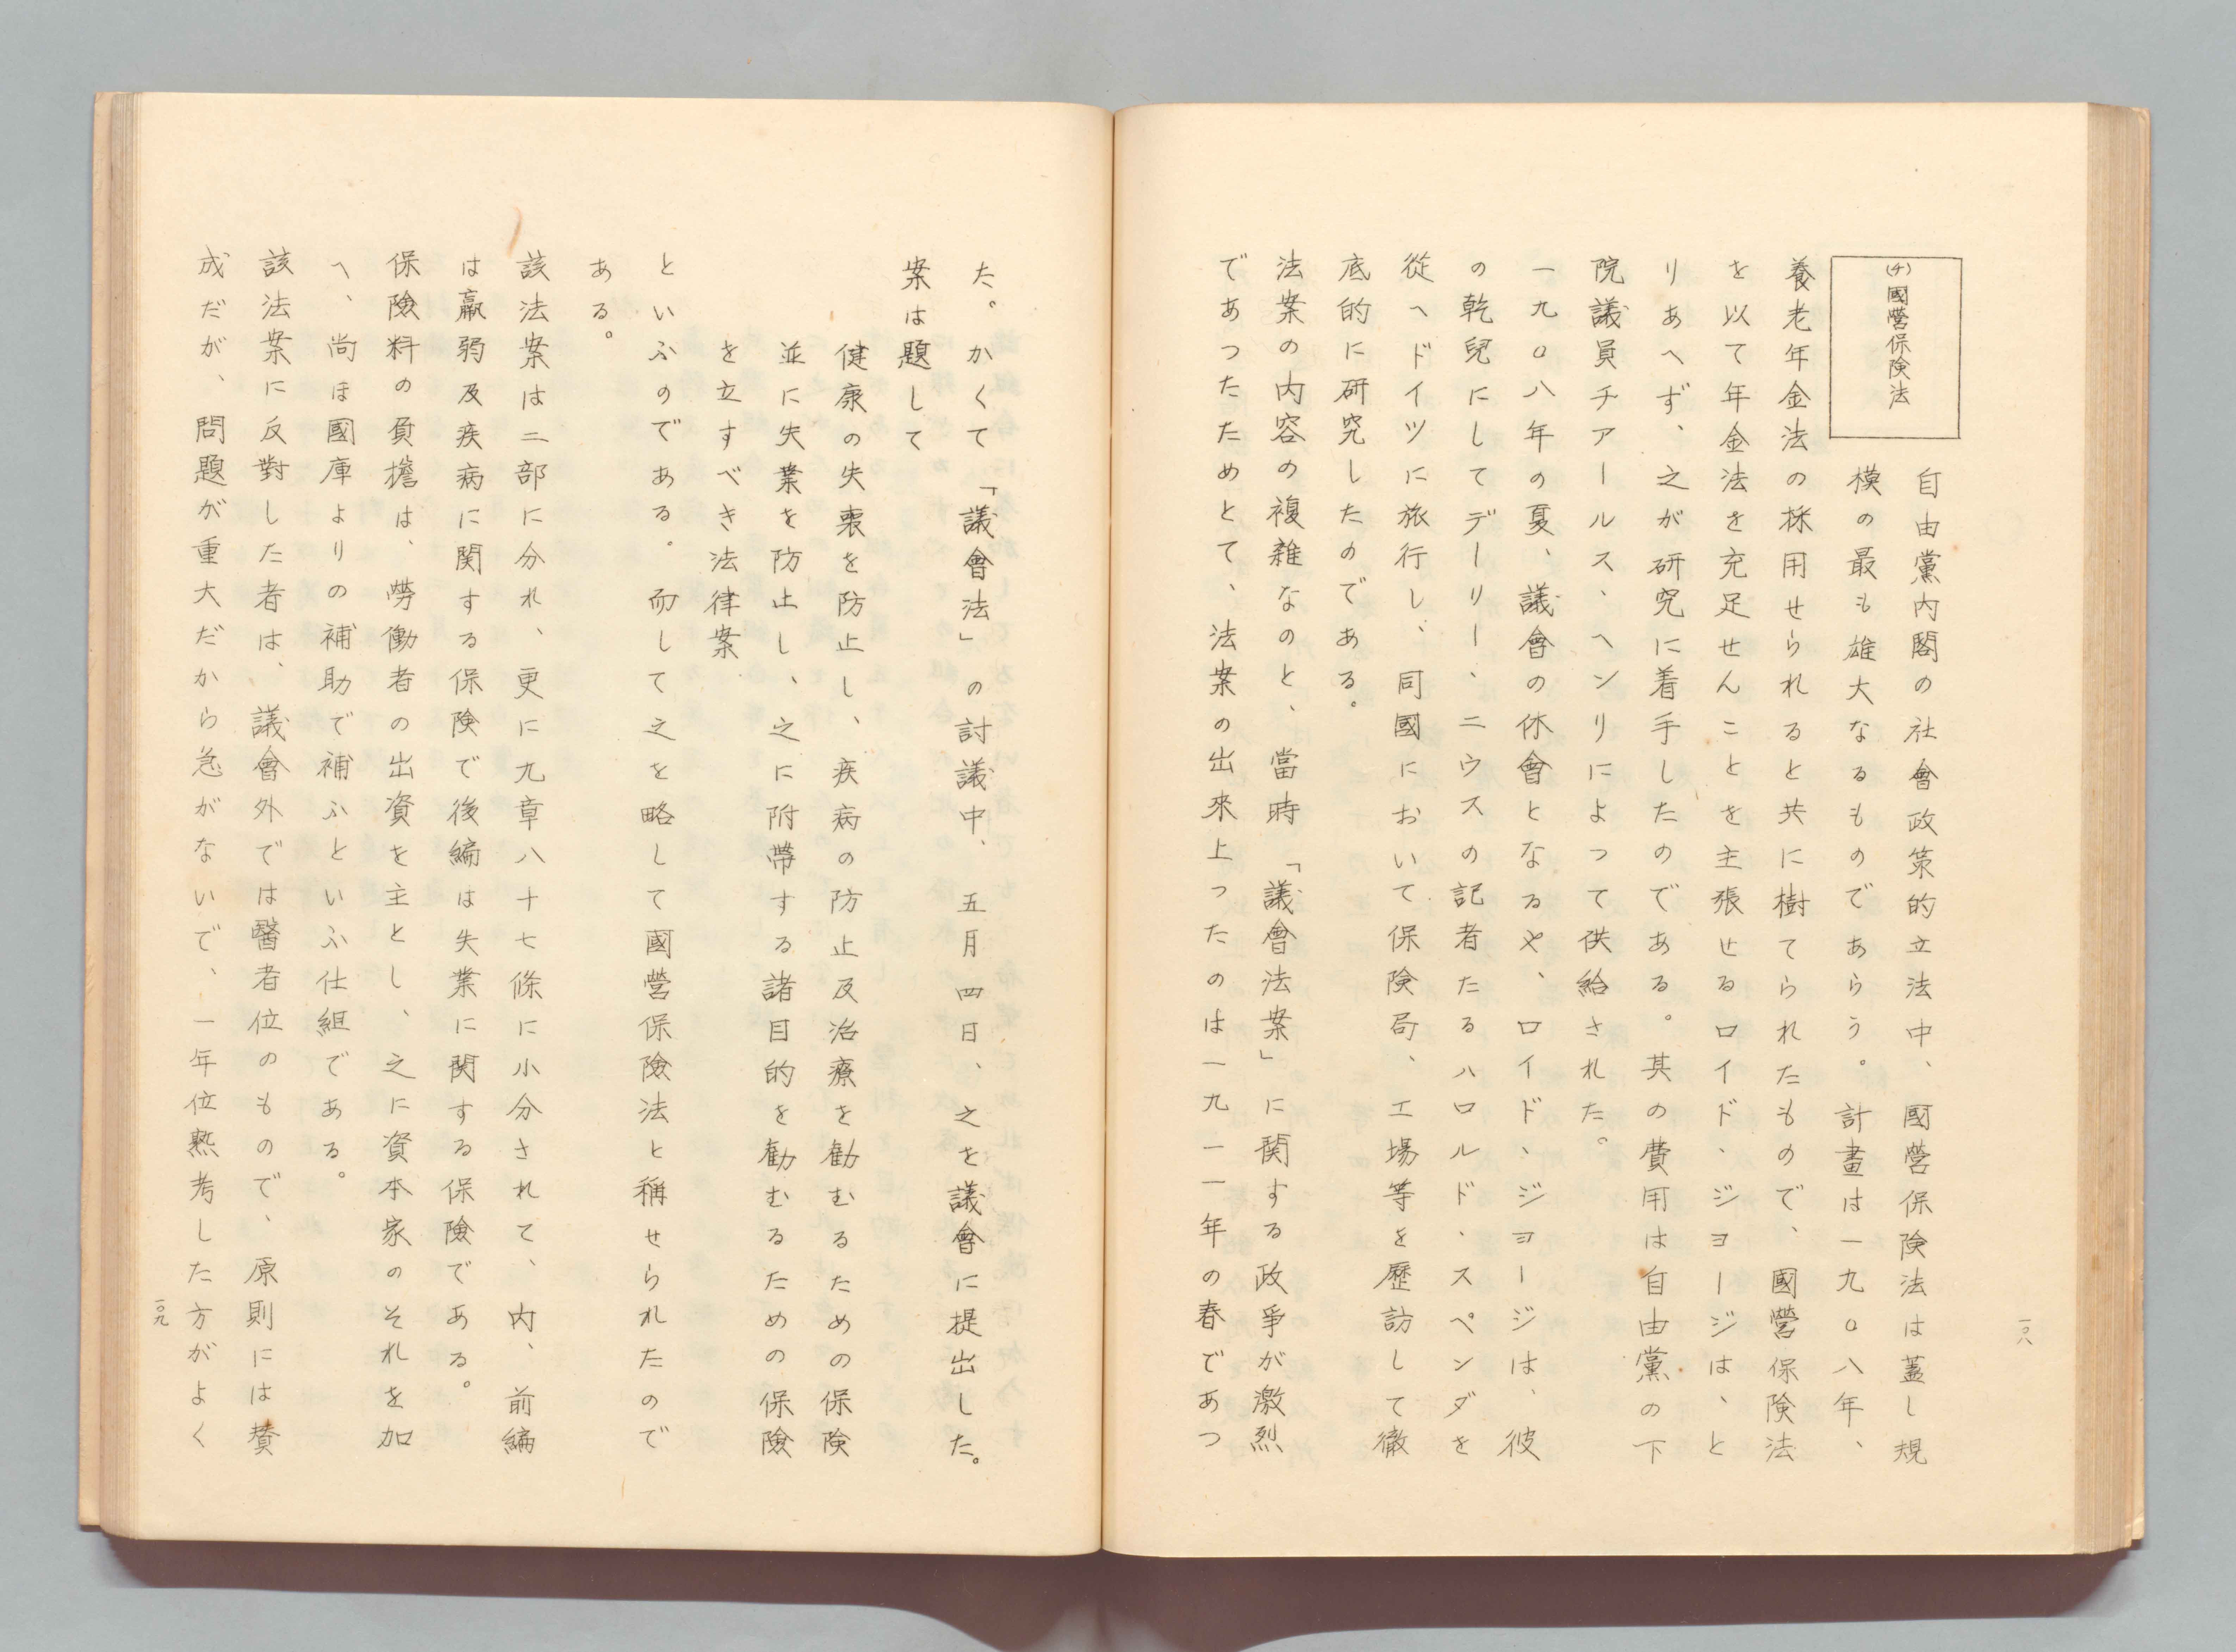 (チ)國營保険法
自由黨内閣の社會政策的立法中、國營保険法は蓋し規
模の最も雄大なるものであらう。計畫は一九〇八年、
養老年金法の採用せられると共に樹てられたもので、國營保険法
を以て年金法を充足せんことを主張せるロイド、ジヨージは、と
りあへず、之が研究に着手したのである。其の費用は自由黨の下
院議員チアールス、ヘンリによつて供給された。
一九〇八年の夏、議會の休會となるや、ロイド、ジヨージは、彼
の乾兒にしてデーリー、ニウスの記者たるハロルド、スペンダを
從へドイツに旅行し、同國において保険局、工場等を歷訪して徹
底的に研究したのである。
法案の内容の複雑なのと、當時「議會法案」に関する政爭が激烈
であつたためとて、法案の出來上つたのは一九一一年の春であつ
一〇八
た。かくて「議會法」の討議中、五月四日、之を議會に提出した。
案は題して
健康の失喪を防止し、疾病の防止及治療を勧むるための保険
並に失業を防止し、之に附帶する諸目的を勧むるための保險
を立すべき法律案
といふのである。而して之を略して國營保險法と稱せられたので
ある。
該法案は二部に分れ、更に九章八十七條に小分されて、内、前編
は羸弱及疾病に関する保険で後編は失業に関する保險である。
保險料の負擔は、勞働者の出資を主とし、之に資本家のそれを加
へ、尚ほ國庫よりの補助で補ふといふ仕組である。
該法案に反對した者は、議會外では醫者位のもので、原則には賛
成だが、問題が重大だから急がないで、一年位熟考した方がよく
一〇九